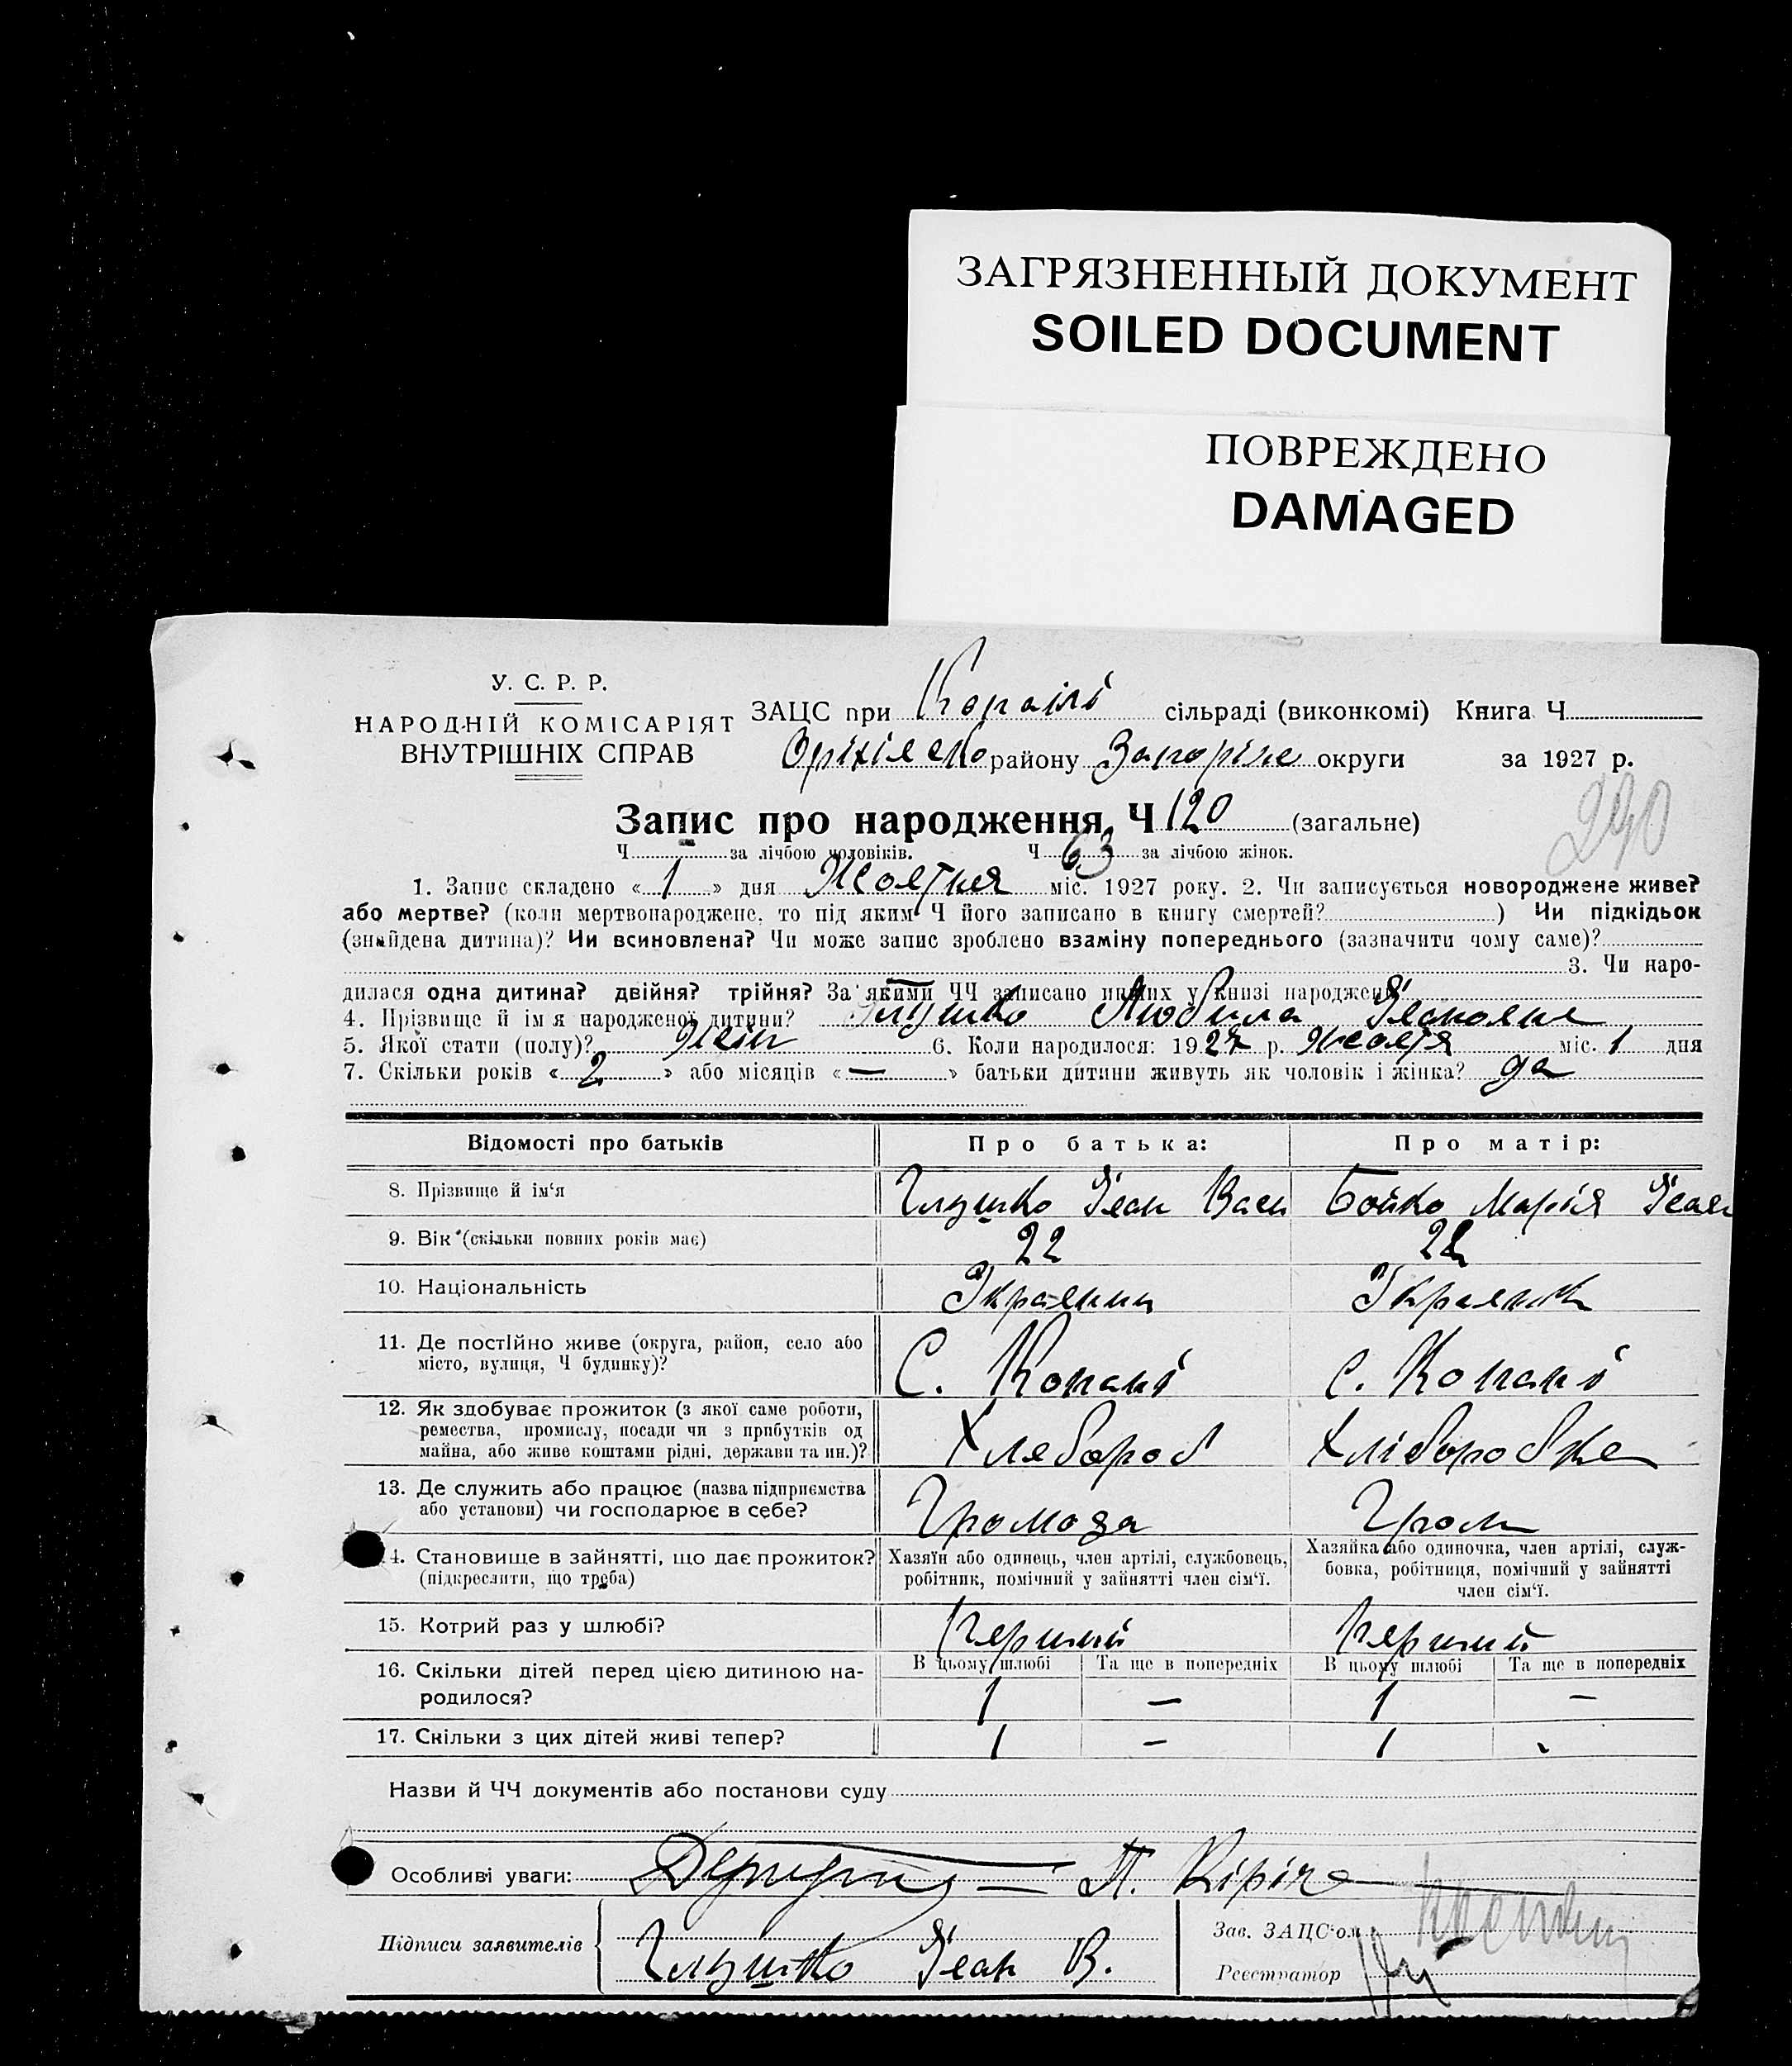 ЗАГРЯЗНЕННЫЙ ДОКУМЕНТ
SOILED DOCUMENT
ПОВРЕЖДЕНО
DAMAGED
У. С. Р. Р.
НАРОДНІЙ КОМІСАРІЯТ
ВНУТРІШНІХ СПРАВ
ЗАЦС при сільраді (виконкомі) Книга Ч
району Запоріж округи за 1927 р.
290
Запис про народження Ч 120 (загальне)
Ч за лічбою чоловіків. Ч 63 за лічбою жінок.
1. Запис складено « 1 » дня Жовтня міс. 1927 року. 2. Чи записується новороджене живе?
або мертве? (коли мертвонароджене, то під яким Ч його записано в книгу смертей? ) Чи підкідьок
(знайдена дитина)? Чи всиновлена? Чи може запис зроблено взаміну попереднього (зазначити чому саме)?
3. Чи наро-
дилася одна дитина? двійня? трійня? За якими ЧЧ записано инших у книзі народжень
4. Прізвище й ім я народженої дитини? Глушко Любила Івановна
5. Якої стати (полу)? Жін 6. Коли народилося: 1927 р. Жовтя міс. 1 дня
7. Скільки років « 2 » або місяців « — » батьки дитини живуть як чоловік і жінка? да
Відомості про батьків Про батька: Про матір:
8. Прізвище й ім'я Глушко Іван Васи Бойко Марія Іван
9. Вік (скільки повних років має) 22 22
10. Національність Україниць Українк
11. Де постійно живе (округа, район, село або
місто, вулиця, Ч будинку)? С. Копані с. Копані
12. Як здобуває прожиток (з якої саме роботи,
ремества, промислу, посади чи з прибутків од
майна, або живе коштами рідні, держави та ин.)? Хлебороб Хліборобка
13. Де служить або працює (назва підприємства
або установи) чи господарює в себе? Громада Гром
14. Становище в зайнятті, що дає прожиток?
(підкреслити, що треба)
Хазяїн або одинець, член артілі, службовець,
робітник, помічний у зайнятті член сім'ї.
Хазяйка або одиночка, член артілі, служ-
бовка, робітниця, помічний у зайнятті
член сім'ї.
15. Котрий раз у шлюбі? Перший Перший
16. Скільки дітей перед цією дитиною на-
родилося?
В цьому шлюбі Та ще в попередніх В цьому шлюбі Та ще в попередніх
1 — 1 —
17. Скільки з цих дітей живі тепер? 1 — 1 -
Назви й ЧЧ документів або постанови суду
Особливі уваги:
Підписи заявителів Глушко Іван В.
Зав. ЗАЦС'ом
Реєстратор